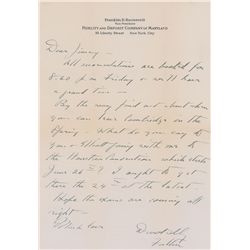 Franklin D. Roosevelt
Vice President
Fidelity and Deposit Company of Maryland
55 Liberty Street New York City
Dear Jimmy -
All accomodations are booked for
8:20 p.m. Friday & will have
a grand time -
By the way find out about when
you can leave Cambridge in the
Spring. What do you say to
you & Elliott going with me to
the Houston Convention which starts
June 26th? I ought to get
there the 24th at the latest.
Hope the exams are coming all
right -
Much love
Devotedly
Father